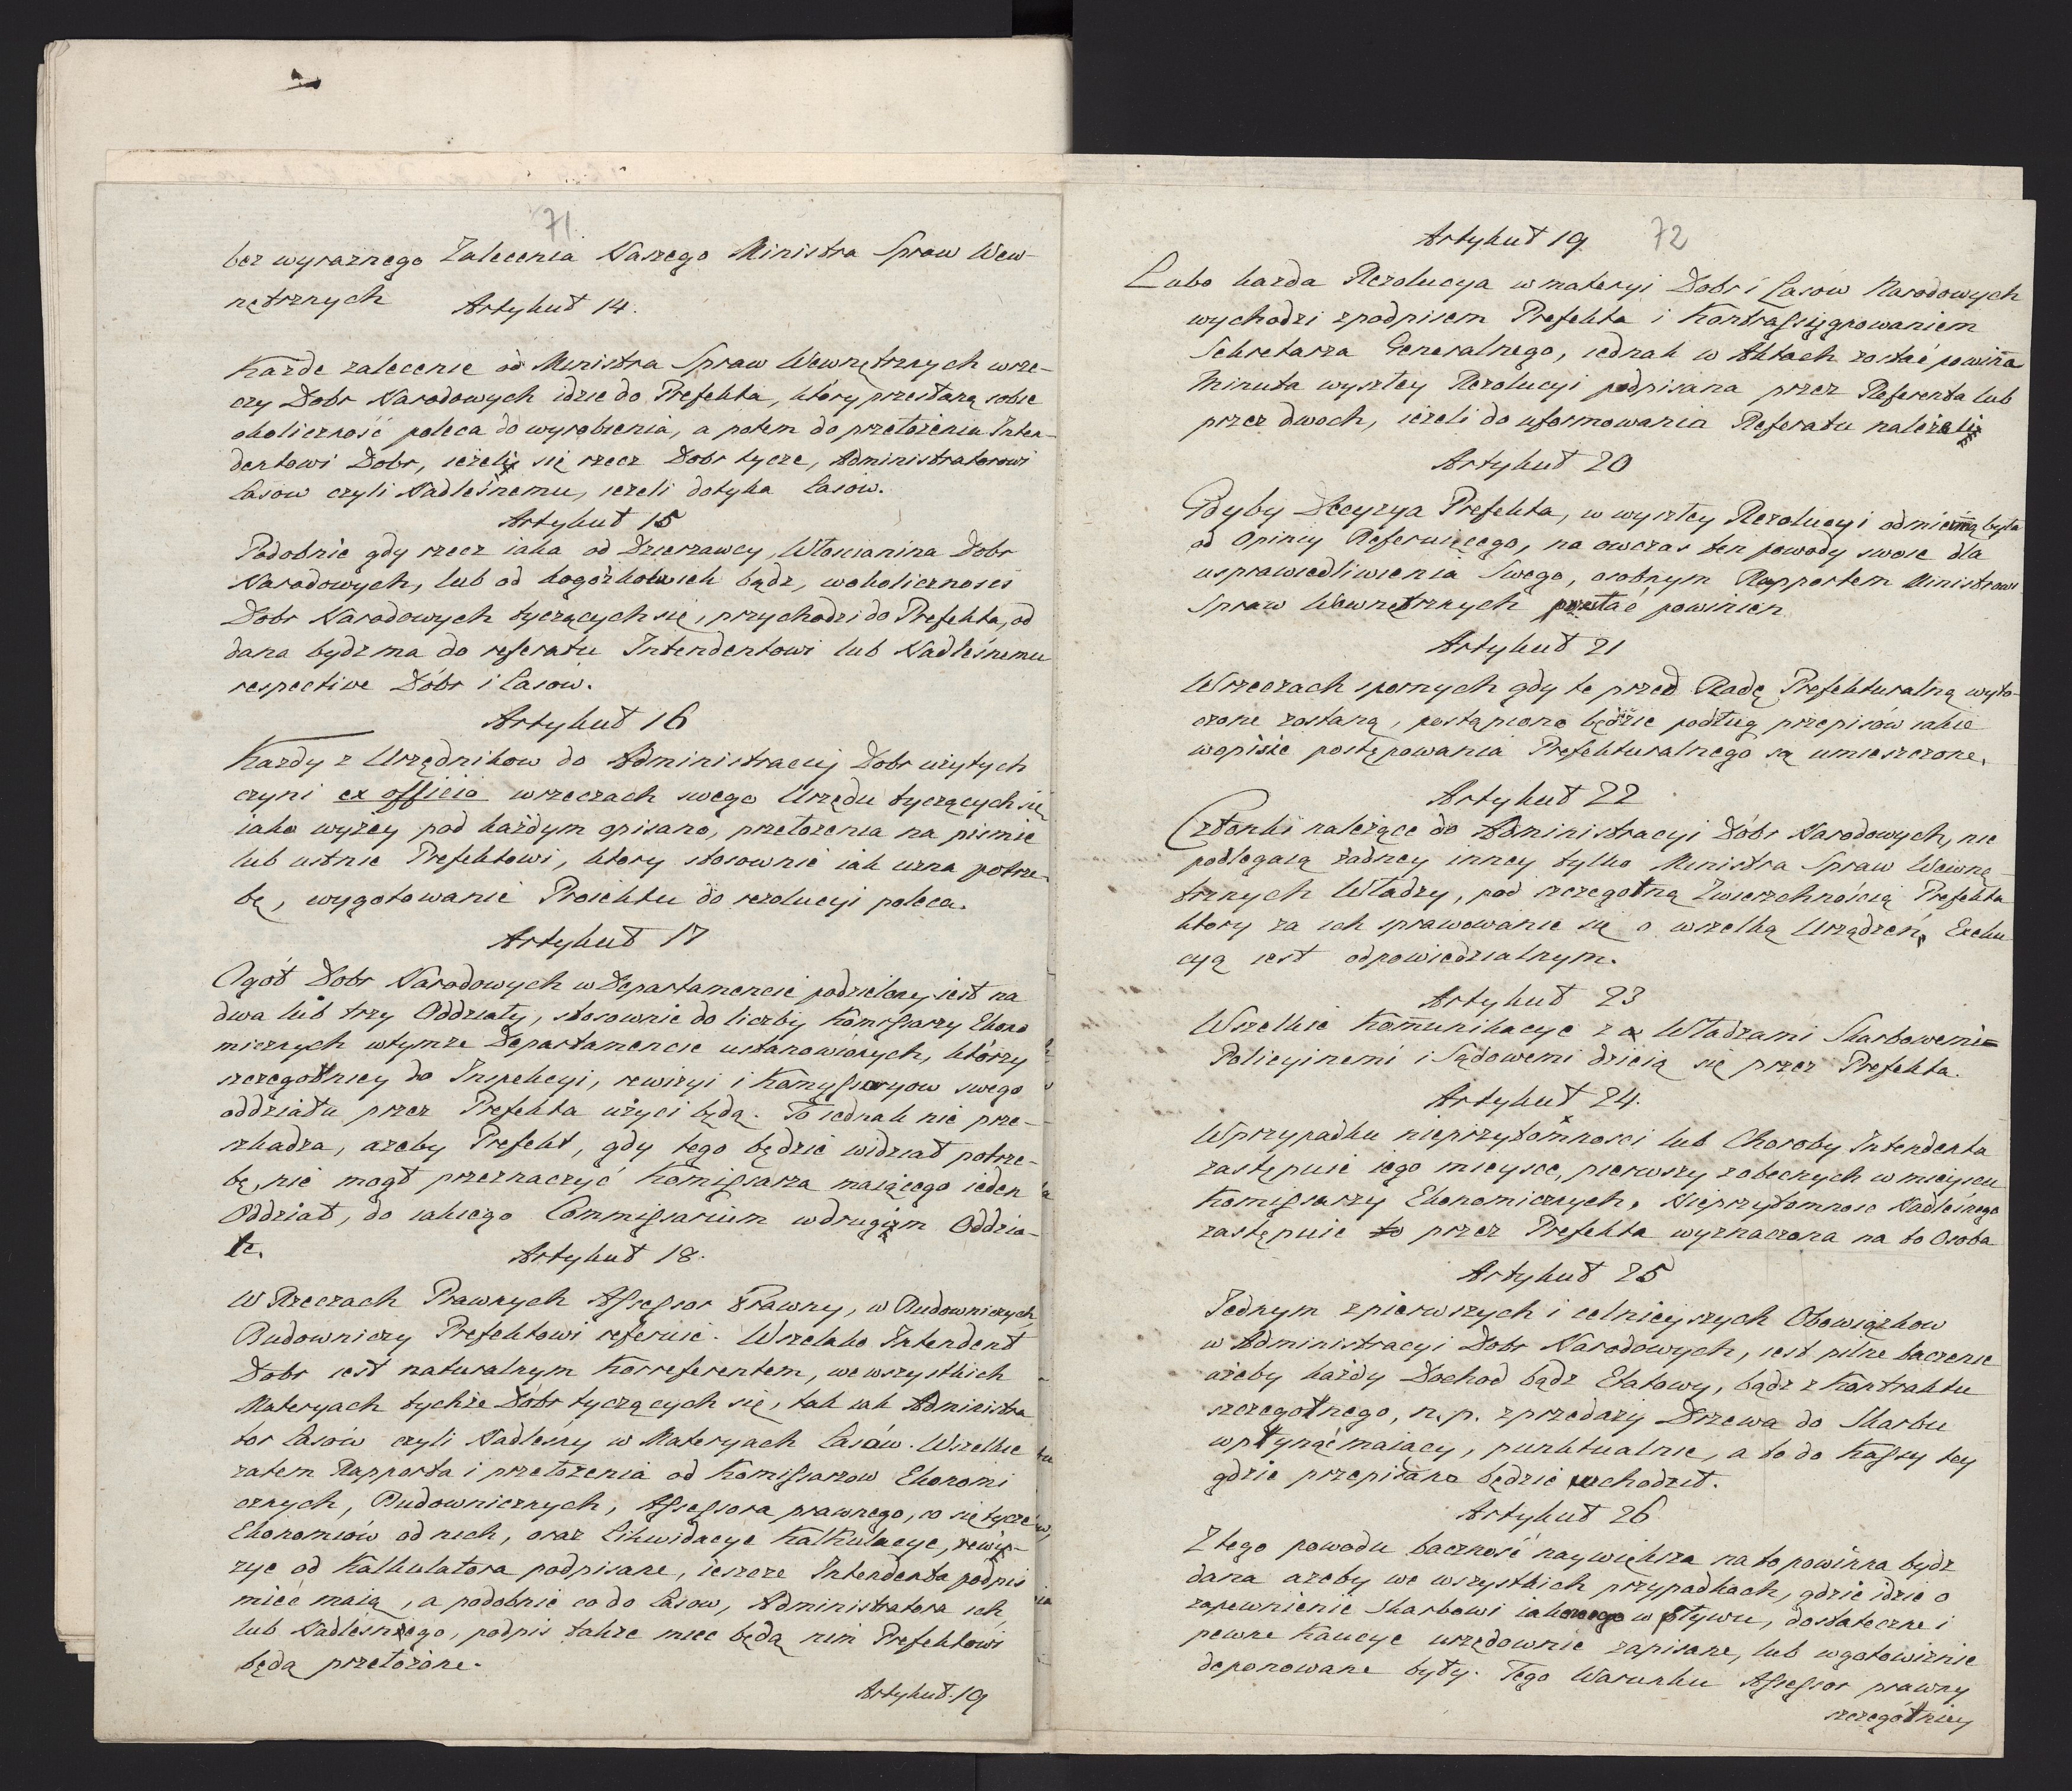 71
bez wyraznego Zalecenia Naszego Ministra Spraw Wew-
nętrznych Artykuł 14.
Każde zalecenie od Ministra Spraw Wewnętrznych wrze-
czy Dobr Narodowych idzie do Prefekta, który przesłaną sobie
okoliczność poleca do wyrobienia, a potem do przełożenia Inten-
dentowi Dobr, ieżeli się rzecz Dobr tycze, Administratorowi
Lasow czyli Nadleśnemu, ieżeli dotyka Lasow.
Artykuł 15
Podobnie gdy rzecz iaka od Dzierzawcy, Włoscianina Dobr
Narodowych, lub od kogożkolwiek bądz, wokoliczności
Dobr Narodowych tyczących się, przychodzi do Prefekta, od
dana bydz ma do referatu Intendentowi lub Nadleśnemu
respective Dóbr i Lasow.
Artykuł 16
Każdy z Urzędnikow do Administracyi Dobr użytych
czyni ex officio wrzeczach swego Urzędu tyczących się
iako wyżey pod każdym opisano, przełożenia na pismie
lub ustnie Prefektowi, ktory stosownie iak uzna potrze-
bę, wygotowanie Proiektu do rezolucyi poleca.
Artykuł 17
Ogół Dobr Narodowych w Departamencie podzielony iest na
dwa lub trzy Oddziały, stosownie do liczby Komissarzy Ekono
micznych wtymże Departamencie ustanowionych, którzy
szczegołniey do Inspekcyi, rewizyi i Komyssaryow swego
oddziału przez Prefekta użyci będą. To iednak nie prze-
szkadza, ażeby Prefekt, gdy tego będzie widział potrze-
bę, nie mogł przeznaczyć Komissarza maiącego ieden
Oddział, do iakiego Commissarium w drugim Oddzia-
le.
Artykuł 18.
W Rzeczach Prawnych Assessor Prawny, w Budowniczych
Budowniczy Prefektowi referuie. Wszelako Intendent
Dobr iest naturalnym Korreferentem, we wszystkich
Materyach tychże Dóbr tyczących się, tak iak Administra
tor Lasow czyli Nadleśny w Materyach Lasów. Wszelkie
zatem Rapporta i przełożenia od Komissarzow Ekonomi
cznych, Budowniczych, Assessora prawnego, co się tycze
Ekonomiów od nich, oraz Likwidacye Kalkulacye, rewi-
zye od Kalkulatora podpisane, ieszcze Intendenta podpis
mieć maią, a podobnie co do Lasow, Administratora ich
lub Nadleśnego, podpis także miec będą nim Prefektowi
będą przełożone.
Artykuł. 19
72
Artykuł 19
Lubo każda Rezolucya w materyi Dobr i Lasów Narodowych
wychodzi zpodpisem Prefekta i Kontrassygnowaniem
Sekretarza Generalnego, iednak w Aktach zostać powinna
Minuta wyszłey Rezolucyi podpisana przez Referenta lub
przez dwoch, ieżeli do uformowania Referatu należeli
Artykuł 20
Gdyby Decyzya Prefekta, w wyszłey Rezolucyi odmienną była
od Opinij Referuiącego, na owczas ten powody swoie dla
usprawiedliwienia Swego, osobnym Rapportem Ministrowi
Spraw Wewnętrznych przesłać powinien
Artykuł 21
Wrzeczach spornych gdy te przed Radę Prefekturalną wyto-
czone zostaną, postąpiono będzie podług przepisów iakie
wopisie postępowania Prefekturalnego są umieszczone.
Artykuł 22
Członki należące do Administracyi Dóbr Narodowych, nie
podlegaią żadney inney tylko Ministra Spraw Wewnę-
trznych Władzy, pod szczegołną Zwierzchnością Prefekta
ktory za ich sprawowanie się o wszelką Urządzeń, Exeku
cyą iest odpowiedzialnym.
Artykuł 23
Wszelkie Kommunikacye z Władzami Skarbowemi
Policyinemi i Sądowemi dzieią się przez Prefekta.
Artykuł 24.
Wprzypadku nieprzytomnosci lub Choroby Intendenta
zastępuie iego mieysce, pierwszy zobecnych w mieyscu
Komissarzy Ekonomicznych. Nieprzytomnosc Nadleśnego
zastępuie przez Prefekta wyznaczona na to Osoba
Artykuł 25
Jednym zpierwszych i celnieyszych Obowiązkow
w Administracyi Dobr Narodowych, iest pilne baczenie
ażeby każdy Dochod bądz Etatowy, bądz z Kontraktu
szczegołnego, n. p. zprzedaży Drzewa do Skarbu
wpłynąć maiący, punktualnie, a to do Kassy tey
gdzie przepisano będzie wchodził.
Artykuł 26
Z tego powodu baczność naywiększa na to powinna bydz
dana ażeby we wszystkich przypadkach, gdzie idzie o
zapewnienie Skarbowi iakiego wpływu, dostateczne i
pewne Kaucye urzędownie zapisane, lub wgotowiznie
deponowane były. Tego Warunku Assessor prawny
szczegółniey